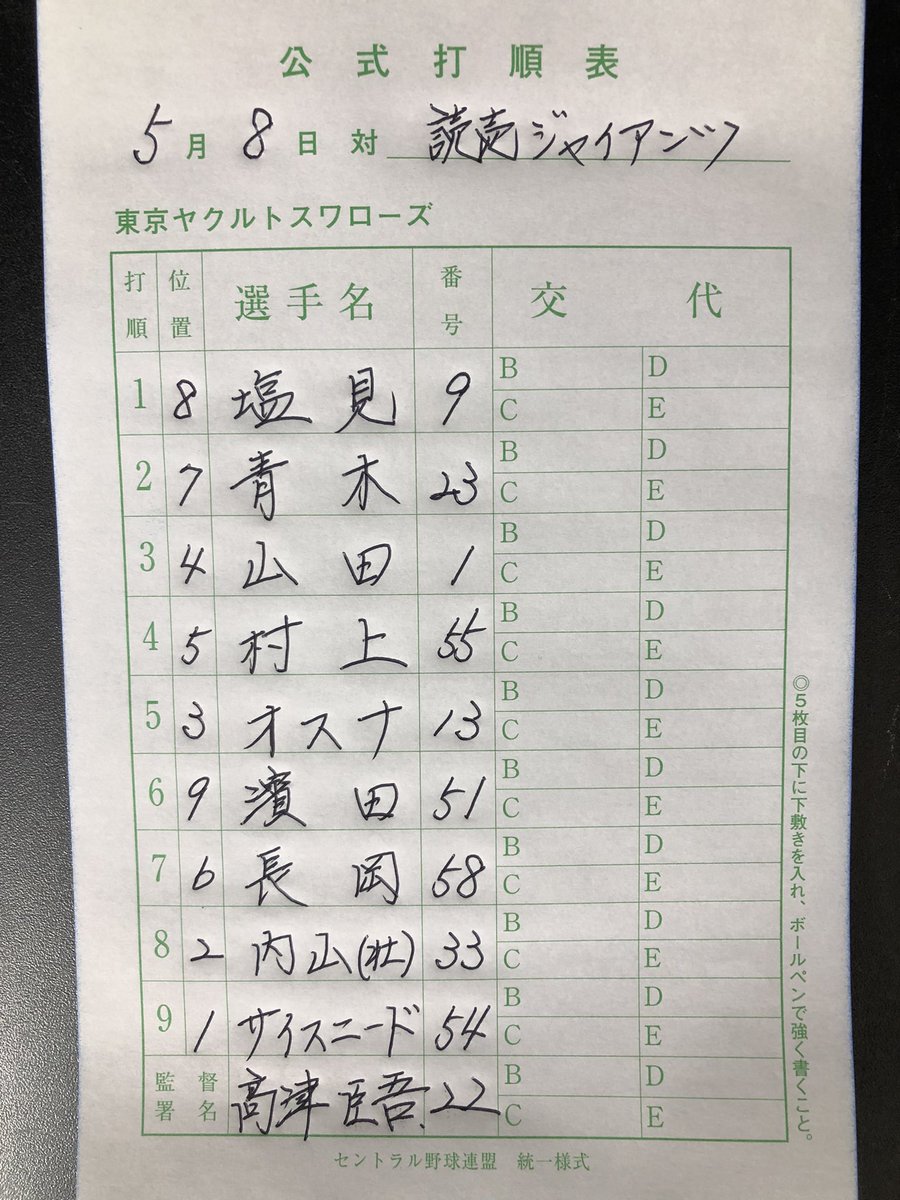 公式打順表
5月8日 対 読売ジャイアンツ
東京ヤクルトスワローズ
打順 位置 選手名 番号 交代
1 8 塩見 9 B D
C E
2 7 青木 23 B D
C E
3 4 山田 1 B D
C E
4 5 村上 55 B D
C E
5 3 オスナ 13 B D
C E
6 9 濱田 51 B D
C E
7 6 長岡 58 B D
C E
8 2 内山(壮) 33 B D
C E
9 1 サイスニード 54 B D
C E
監督署名 高津臣吾 22 B D
C E
セントラル野球連盟 統一様式
◎5枚目の下に下敷きを入れ、ボールペンで強く書くこと。